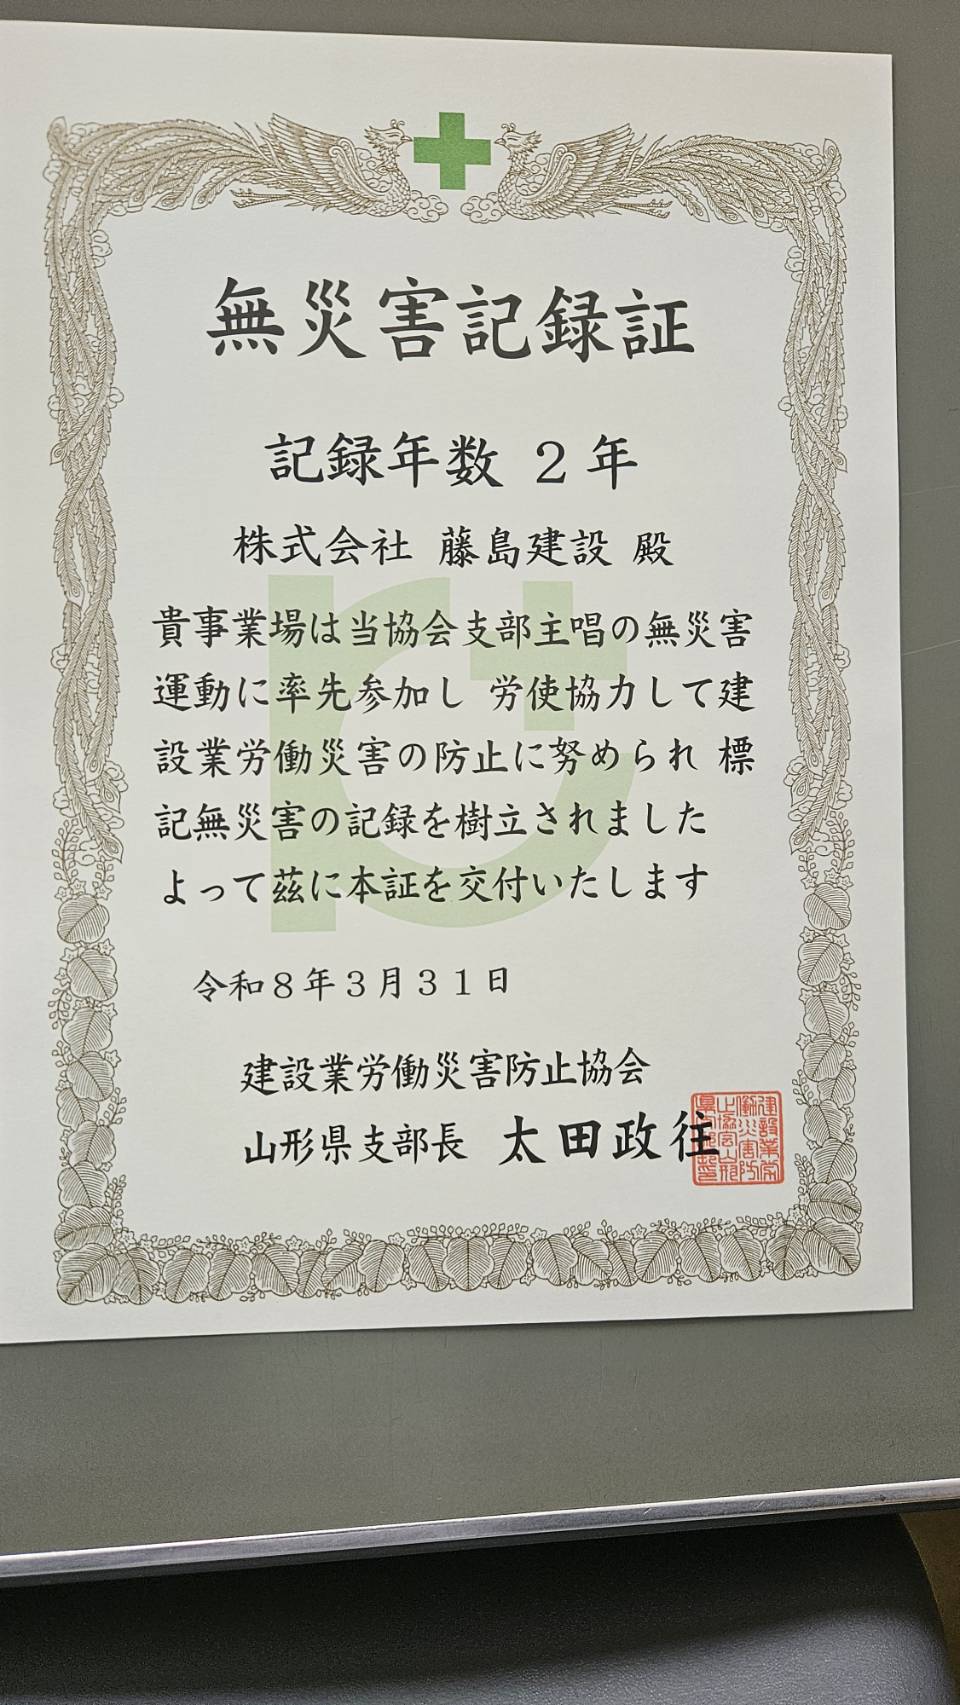 無災害記録証
記録年数 2年
株式会社 藤島建設 殿
貴事業場は当協会支部主唱の無災害
運動に率先参加し 労使協力して建
設業労働災害の防止に努められ 標
記無災害の記録を樹立されました
よって茲に本証を交付いたします
令和8年3月31日
建設業労働災害防止協会
山形県支部長 太田政往